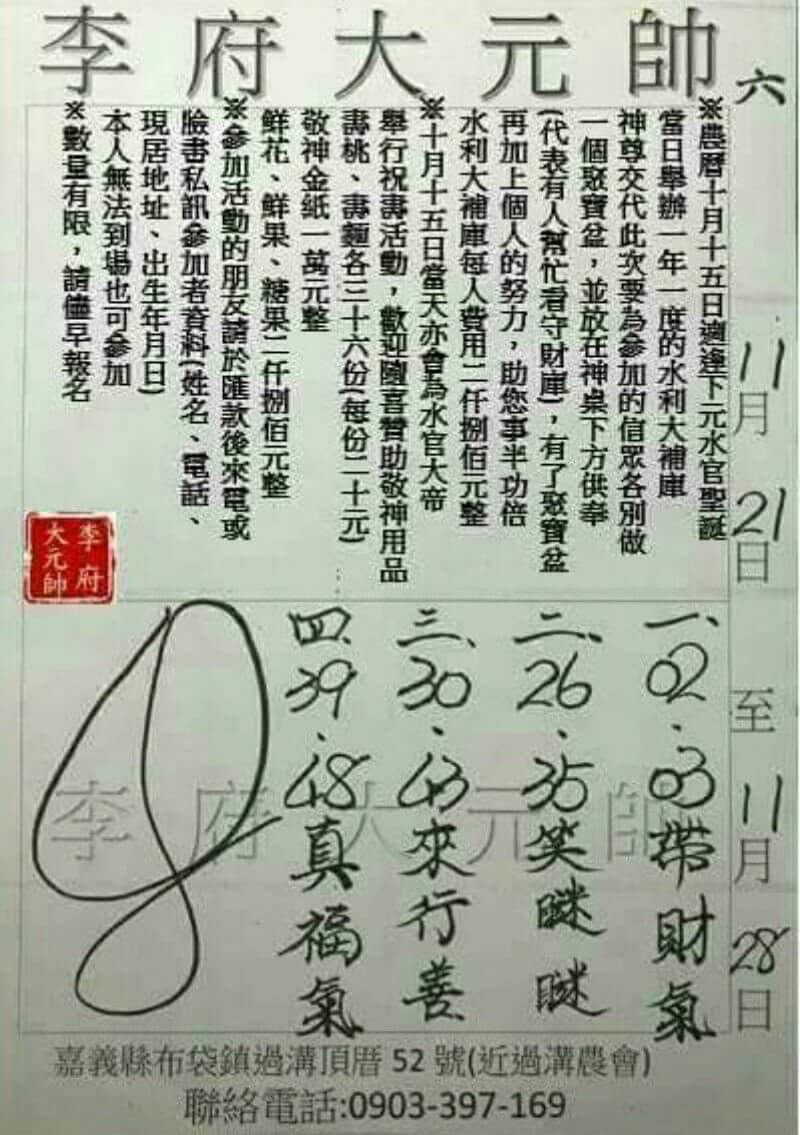 李府大元帥
六
11月21日至11月28日
※農曆十月十五日適逢下元水官聖誕
當日舉辦一年一度的水利大補庫
神尊交代此次要為參加的信眾各別做
一個聚寶盆，並放在神桌下方供奉
(代表有人幫忙看守財庫)，有了聚寶盆
再加上個人的努力，助您事半功倍
水利大補庫每人費用二仟捌佰元整
※十月十五日當天亦會為水官大帝
舉行祝壽活動，歡迎隨喜贊助敬神用品
壽桃、壽麵各三十六份(每份二十元)
敬神金紙一萬元整
鮮花、鮮果、糖果二仟捌佰元整
※參加活動的朋友請於匯款後來電或
臉書私訊參加者資料(姓名、電話、
現居地址、出生年月日)
本人無法到場也可參加
※數量有限，請儘早報名
李府
大元帥
一、02、03帶財氣
二、26、35笑瞇瞇
三、30、43來行善
四、39、48真福氣
李府大元帥
嘉義縣布袋鎮過溝頂厝 52 號(近過溝農會)
聯絡電話:0903-397-169